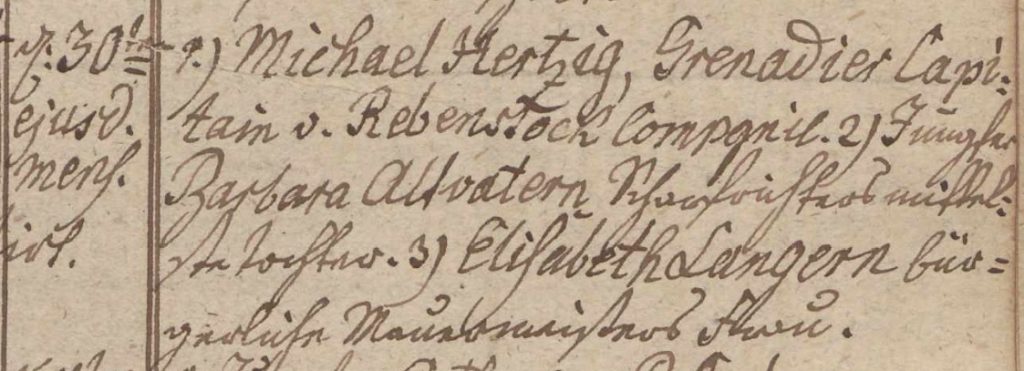 d. 30t 1.) Michael Hertzig, Grenadier Capi-
ejusd. tain v. Rebenstock Compagnie. 2) Jungfer
mens. Barbara Altvatern Scharfrichters mittel-
ste Tochter. 3) Elisabeth Langern bür=
gerliche Mauermeisters Frau.